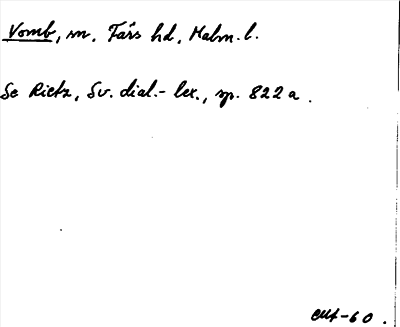 Vomb, m. Färs hd, Malm. l.
Se Rietz, Sv. dial.-lex., sp. 822 a.
-60.